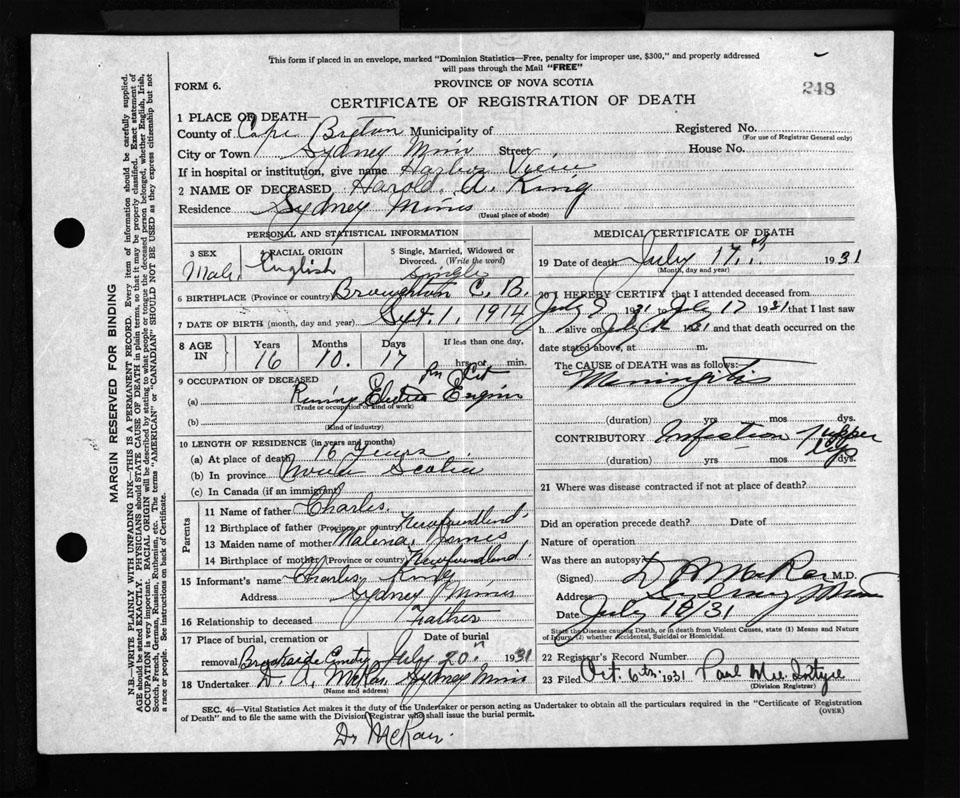 This form if placed in an envelope, marked "Dominion Statistics—Free, penalty for improper use, $300," and properly addressed
will pass through the Mail "FREE"
FORM 6.
PROVINCE OF NOVA SCOTIA
248
CERTIFICATE OF REGISTRATION OF DEATH
1 PLACE OF DEATH—
County of Cape Breton Municipality of
Registered No.
(For use of Registrar General only)
City or Town Sydney Mines Street
House No.
If in hospital or institution, give name Harbor View
2 NAME OF DECEASED Harold A. King
Residence Sydney Mines
(Usual place of abode)
PERSONAL AND STATISTICAL INFORMATION
3 SEX
Male
4 RACIAL ORIGIN
English
5 Single, Married, Widowed or
Divorced. (Write the word)
single
6 BIRTHPLACE (Province or country) Broughton C. B.
7 DATE OF BIRTH (month, day and year) Sept. 1, 1914
8 AGE
IN
Years
16
Months
10
Days
17
If less than one day,
hrs or min.
9 OCCUPATION OF DECEASED
(a) Electric Engine
(Trade or occupation or kind of work)
(b)
(Kind of industry)
10 LENGTH OF RESIDENCE (in years and months)
(a) At place of death 16 years
(b) In province Nova Scotia
(c) In Canada (if an immigrant)
Parents
11 Name of father Charles
12 Birthplace of father (Province or country) Newfoundland
13 Maiden name of mother
14 Birthplace of mother (Province or country) Newfoundland
15 Informant's name Charles King
Address Sydney Mines
16 Relationship to deceased Father
17 Place of burial, cremation or
Date of burial
removal Brookside July 20th 1931
18 Undertaker D. A. McRae Sydney Mines
(Name and address)
MEDICAL CERTIFICATE OF DEATH
19 Date of death July 17th 1931
(Month, day and year)
20 I HEREBY CERTIFY that I attended deceased from
July 9 1931 to July 17 1931 that I last saw
h alive on July 1931 and that death occurred on the
date stated above, at m.
The CAUSE OF DEATH was as follows:
Meningitis
(duration) yrs mos dys.
CONTRIBUTORY Infection upper lip
(duration) yrs mos dys.
21 Where was disease contracted if not at place of death?
Did an operation precede death? Date of
Nature of operation
Was there an autopsy?
(Signed) McRae M.D.
Address Sydney Mines
Date July 18/31
State the Disease causing Death, or in death from Violent Causes, state (1) Means and Nature
of Injury, (2) whether Accidental, Suicidal or Homicidal.
22 Registrar's Record Number
23 Filed Oct 6th 1931 Paul
(Division Registrar)
SEC. 46—Vital Statistics Act makes it the duty of the Undertaker or person acting as Undertaker to obtain all the particulars required in the "Certificate of Registration
of Death" and to file the same with the Division Registrar who shall issue the burial permit.
(OVER)
Dr McRae
MARGIN RESERVED FOR BINDING
N.B.—WRITE PLAINLY WITH UNFADING INK—THIS IS A PERMANENT RECORD. Every item of information should be carefully supplied.
AGE should be stated EXACTLY. PHYSICIANS should STATE CAUSE OF DEATH in plain terms, so that it may be properly classified. Exact statement of
OCCUPATION is very important. RACIAL ORIGIN will be described by stating to what people or tongue the deceased person belonged, whether English, Irish,
Scotch, French, German, Russian, Ruthenian, etc. The terms "AMERICAN" or "CANADIAN" SHOULD NOT BE USED as they express citizenship but not
a race or people. See instructions on back of Certificate.